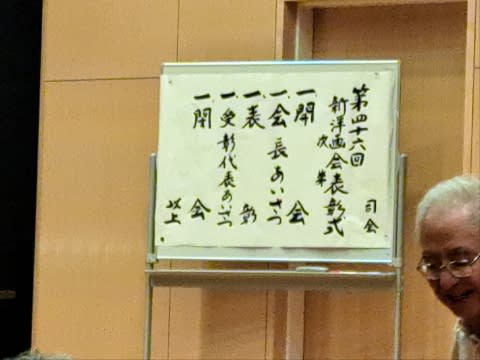 第四十六回
新洋画会表彰式
次第
司会
一、開会
一、会長あいさつ
一、表彰
一、受彰代表あいさつ
一、閉会
以上